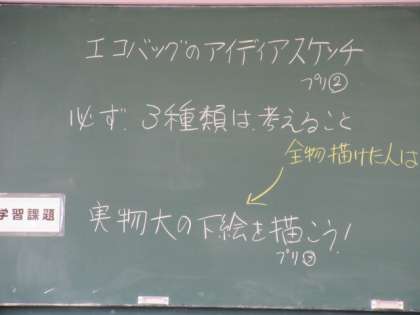 エコバッグのアイディアスケッチ
プリ②
必ず、3種類は、考えること
全物描けた人は
学習課題
実物大の下絵を描こう!
プリ③